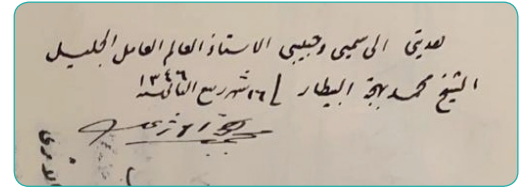 هديتي الى سميي وحبيبي الاستاذ العالم العامل الجليل
الشيخ محمد بهجة البيطار / ١٦ شهر ربيع الثاني سنة ١٣٤٦
الاثري